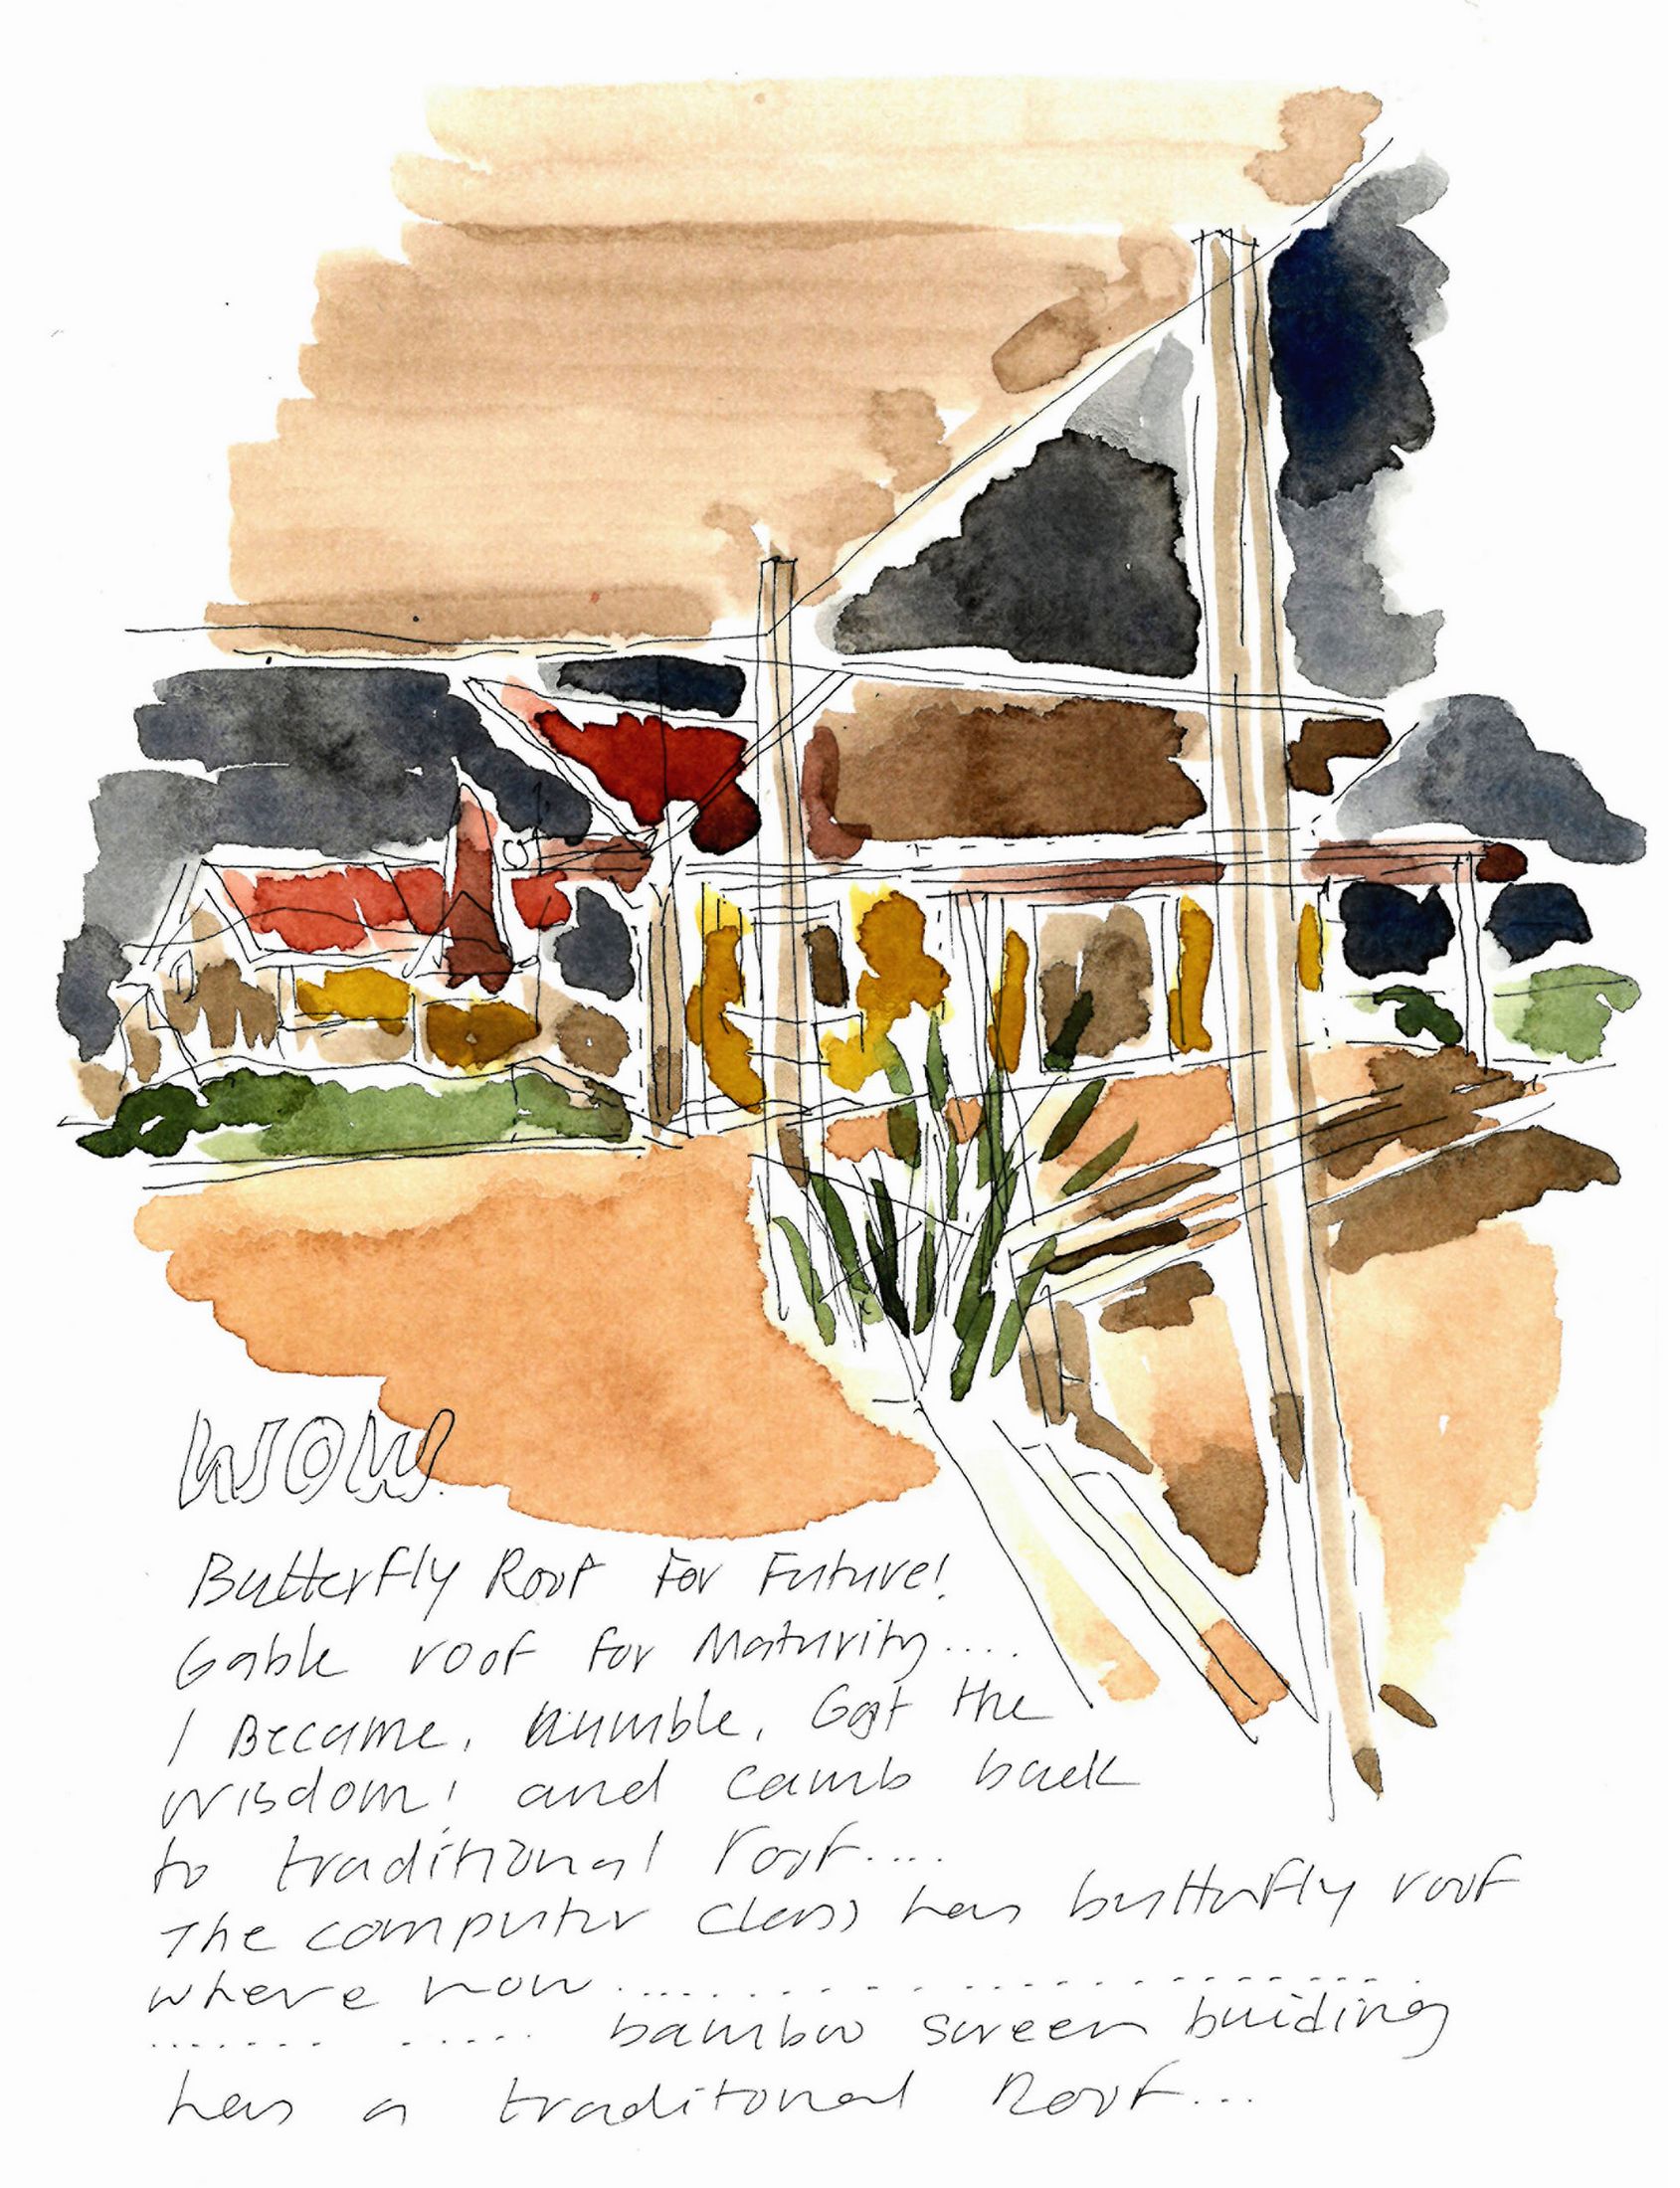 WOW.
Butterfly Roof For Future!
Gable roof for Maturity....
I Became, humble, Got the
wisdom! and camb back
to traditional roof....
The computer class has butterfly roof
where now ..............................
............ bamboo screen buiding
has a traditonal Roof...